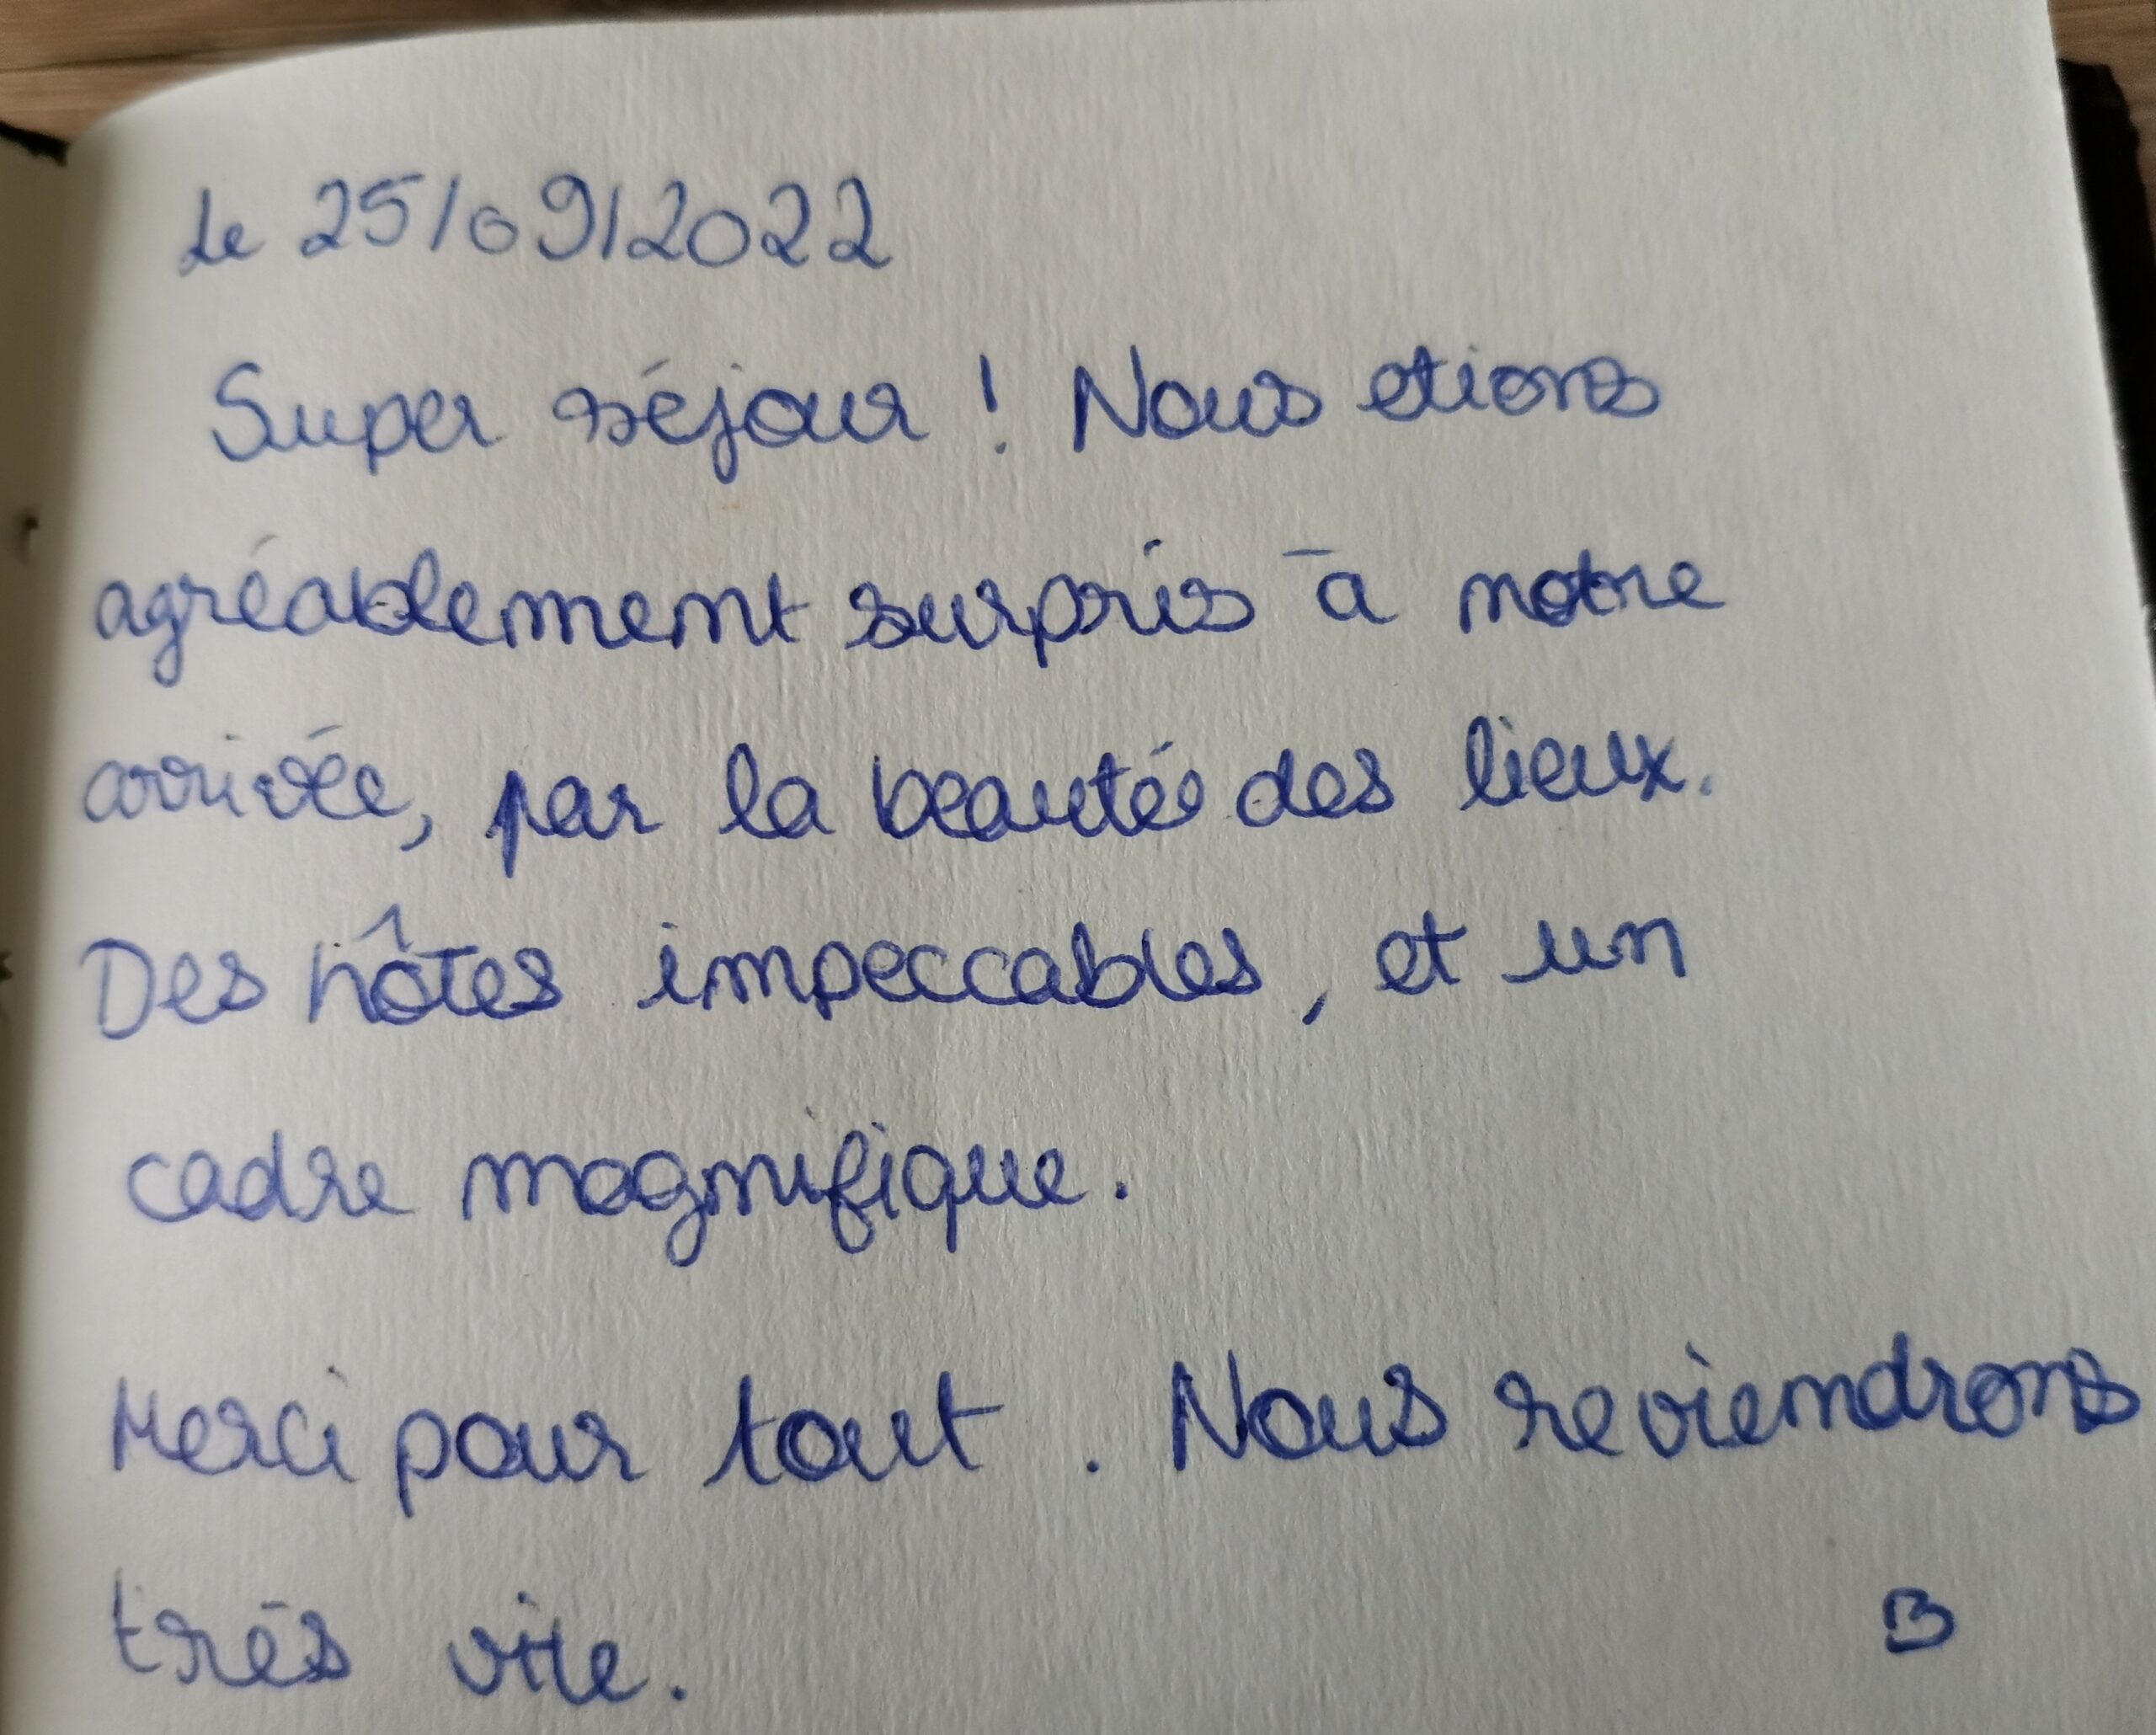 Le 25/09/2022
Super séjour ! Nous etions
agréablement surpris à notre
arrivée, par la beautée des lieux.
Des hôtes impeccables, et un
cadre magnifique.
Merci pour tout . Nous reviendrons
très vite.
B